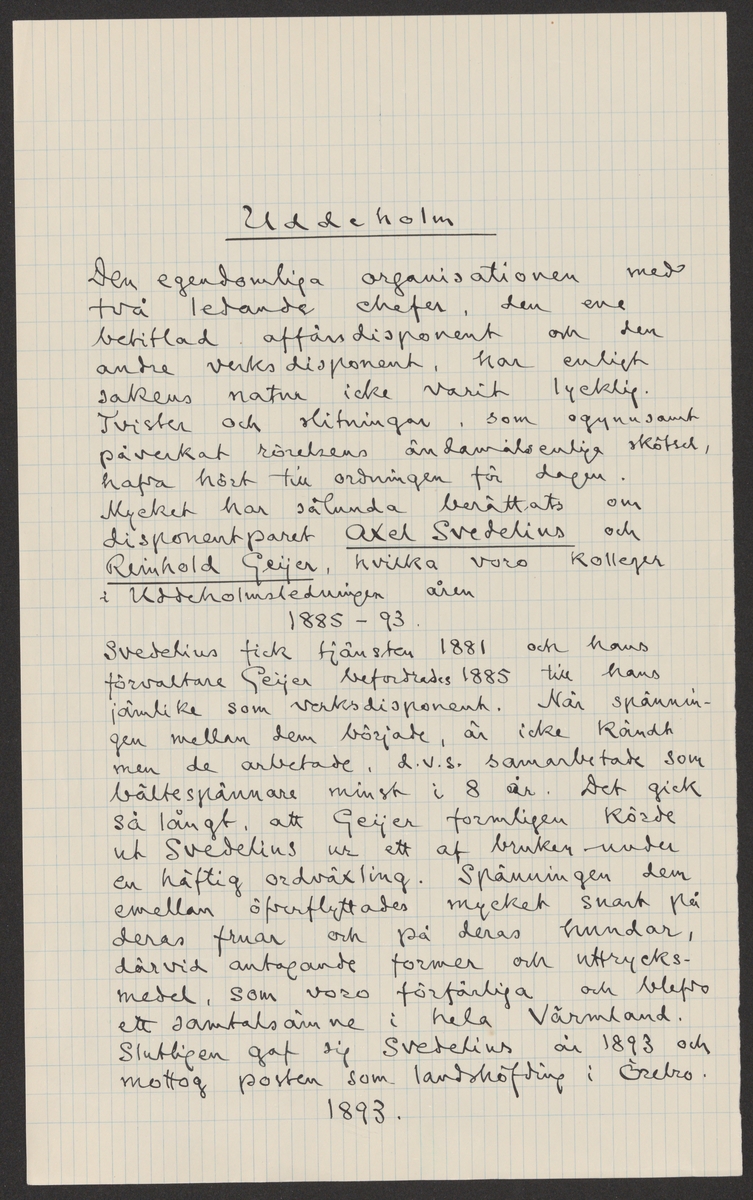 Uddeholm
Den egendomliga organisationen med
två ledande chefer, den ene
betitlad affärsdisponent och den
andre verksdisponent, har enligt
sakens natur icke varit lycklig.
Tvister och slitningar, som ogynnsamt
påverkat rörelsens ändamålsenliga skötsel,
hafva hört till ordningen för dagen.
Mycket har sålunda berättats om
disponentparet Axel Svedelius och
Reinhold Geijer, hvilka voro kolleger
i Uddeholmsledningen åren
1885 - 93.
Svedelius fick tjänsten 1881 och hans
förvaltare Geijer befordrades 1885 till hans
jämlike som verksdisponent. När spännin-
gen mellan dem började, är icke kändt
men de arbetade, d.v.s. samarbetade som
bältespännare minst i 8 år. Det gick
så långt, att Geijer formligen körde
ut Svedelius ur ett af bruken under
en häftig ordväxling. Spänningen dem
emellan öfverflyttades mycket snart på
deras fruar och på deras hundar,
därvid antagande former och uttrycks-
medel, som voro förfärliga och blefvo
ett samtalsämne i hela Värmland.
Slutligen gaf sig Svedelius år 1893 och
mottog posten som landshöfding i Örebro.
1893.